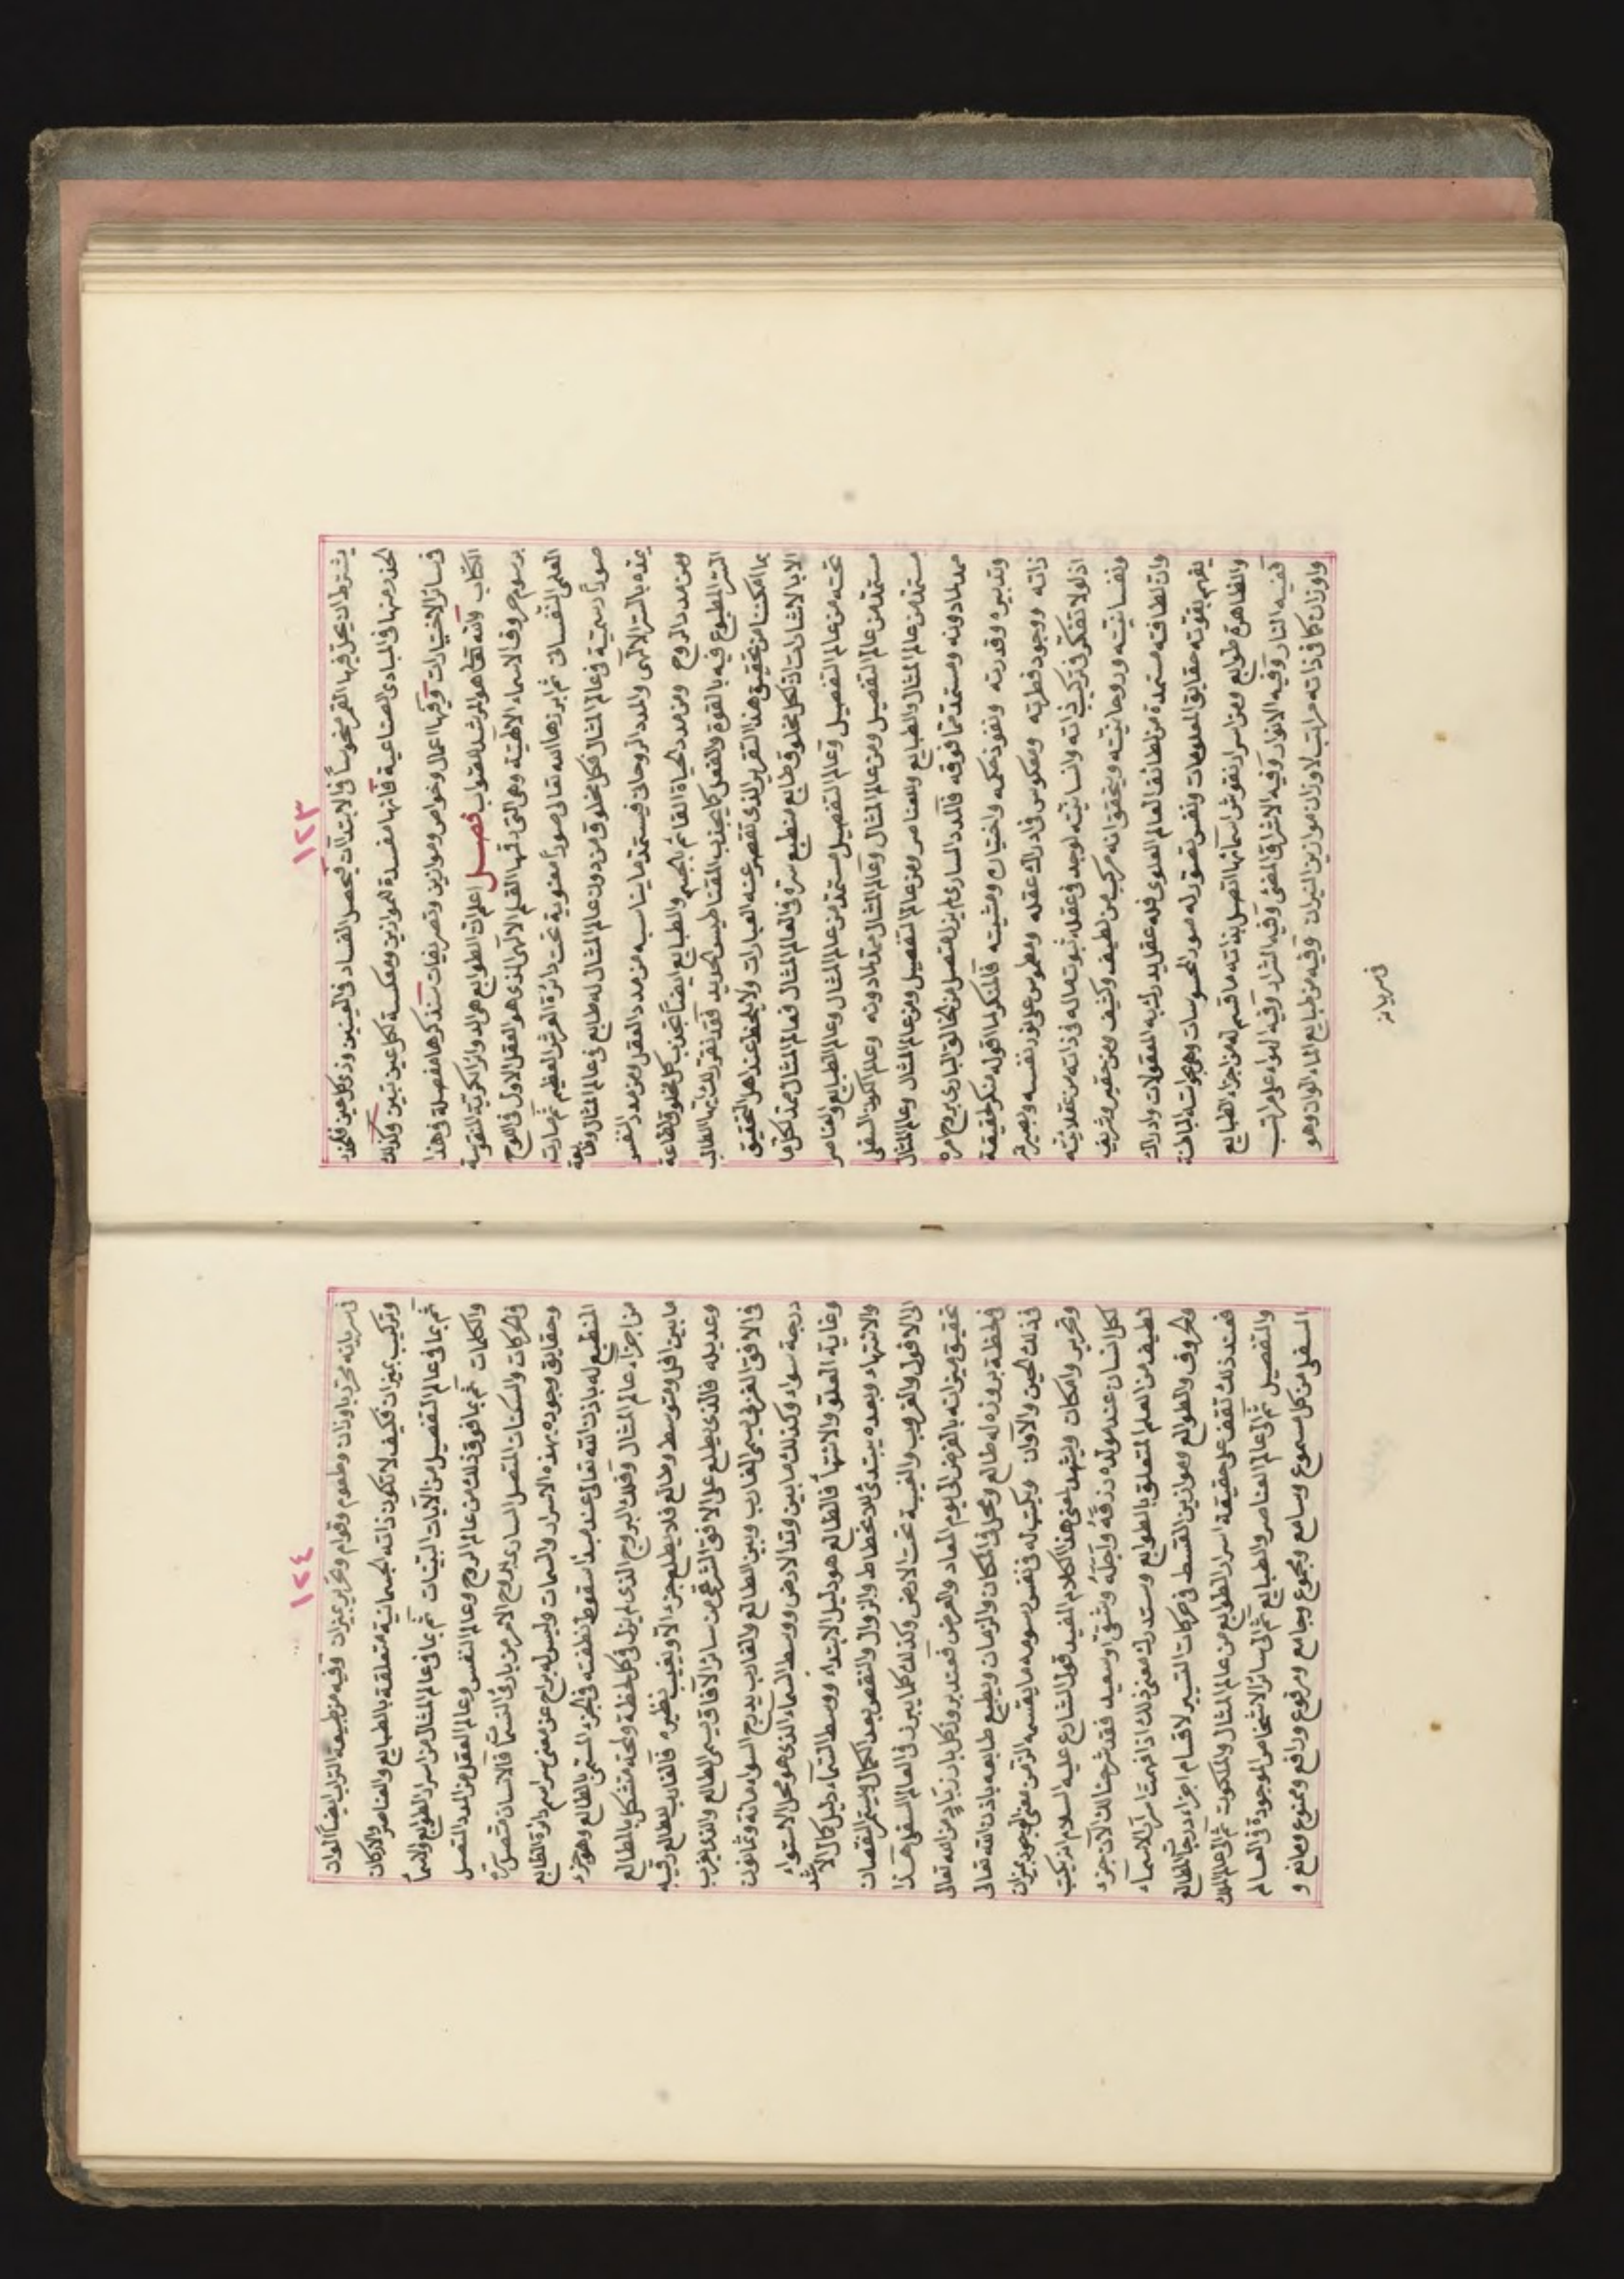 ١٢٣
يشترط ان يحل فيها القمر منحوساً في الابتدآت فيحصل الفساد في العينين وذكر كل عين فلتحذر
الحذر منها في المبادي الصناعية فانها مفسدة للموازين ومعكسة لكل عين تبين وكذلك
في سائر الاختيارات وفيها اعمال وخواص وموازين وتصريفات سنذكرها مفصلة في هذا
الكتاب والله تعالى هو المرشد للصواب فصل اعلم ان الطوابع هي الدوائر الكروية المنقوشة
برسوم حروف الاسماء الالهية وهي التي رقمها القلم الالهي الذي هو العقل الاول في اللوح
العلمي النفساني ثم ابرزها الله تعالى صوراً معنوية تحت دائرة العرش العظيم ثم صارت
صوراً رسمية في عالم المثال فكل مخلوق من دون عالم المثال له طابع في عالم المثال وطابعه
يمده بالسر الالهي والمدد الروحاني فيستمد ما يناسبه من مدد العقل ومن مدد النفس
ومن مدد الروح ومن مدد الحياة القائم بالجسم والطبايع ايضاً تجذب كل مخلوق لطاعة
السر المطبوع فيه بالقوة والفعل كما يجذب المقناطيس الحديد فقد نقر لك ايها الطالب
بما امكننا من تحقيق هذا التقرير الذي تقصر عنه العبارات ولا يلحظ عند اهل التحقيق
الا بالاشارات اذ كل مخلوق طابع منطبع سره في العالم المثال فعالم المثال ممد لكل ما
تحته من عالم التفصيل وعالم التفصيل مستمد من عالم المثال وعالم الطبايع والعناصر
مستمد من عالم التفصيل ومن عالم المثال وعالم المثال ممد لما دونه وعالم الكون السفلي
مستمد من عالم المثال والطبايع والعناصر ومن عالم التفصيل ومن عالم المثال وعالم المثال
ممد لما دونه ومستمد مما فوقه فالمدد الساري لم يزل متصل من الخالق الباري بروح امره
وتدبيره وقدرته ونفوذ حكمه واختياره ومشيته فالمنكر لما اقوله منكر لحقيقة
ذاته ووجود فطرته ومعكوس في ادراك عقله ومطموس على نور نفسه وبصيرته
اذ لولا تفكر في تركيب ذاته وانسانيته لوجد في عقله ثبوت ماله في ذاته من عقلانيته
ونفسانيته وروحانيته ويتحقق انه مركب من لطيف وكثيف ومن حقير وشريف
وان لطافته مستمدة من لطائف العالم العلوي فله عقل يدرك به المعقولات وادراك
يفهم بقوته حقايق المعلومات ونفس تصور له صور المحسوسات وهي حواسه الباطنة
والظاهرة طوابع ومن اسرار نقوش اسمائها اتصل بذاته ما قسم له من اجزاء الطبايع
ففيه النار وفيه الانوار وفيه الاشراق المضئ وفيه الشرار وفيه الهواء على مراتب
واوزان كما في ذاته مراتب لاوزان موازين النيران وفيه من طبايع الماء الوان وهو
في سريانه
١٢٤
في سريانه محرر باوزان وطعوم وقوام وتحرير بميزان وفيه من طبيعة التراب ايضاً الوان
وتركيب بميزان فكيف لا تكون ذاته الجسمانية متعلقة بالطبايع والعناصر والاركان
ثم بما في عالم التفصيل من الآيات البينات ثم بما في عالم المثال من اسرار الطوابع والاسماء
والكلمات ثم بما فوق ذلك من عالم الروح وعالم النفس وعالم العقل من المدد المتصل
في الحركات والسكنات المتصل الساري بروح الامر من بارئ النسمات فالانسان متصل
وحقايق وجوده بهذه الاسرار والسمات وليس له براح عن معنى مراسم دائرة الطابع
المنطبع له باذن الله تعالى عند مبدأ سقوط نطفته في الجزء المسمى بالطالع وهو جزء
من اجزاء عالم المثال وفلك البروج الذي لم يزل في كل لحظة ولمحة متشكل بالطالع
ما بين افل ومتوسط وطالع فلا يطلع جزء الا ويغيب نظيره فالغارب للطالع رقيبه
وعديله فالذي يطلع على الافق الشرقي من سائر الآفاق يسمى الطالع والذي يغرب
في الافق الغربي يسمى الغارب وبين الطالع والغارب بدرج السواء مائة وثمانون
درجة سواء وكذلك ما بين وتد الارض ووسط السماء الذي هو محل الاستواء
وغاية العلو والانتهاء فالطالع هو دليل الابتداء ووسط السماء دليل كمال الاشد
والانتهاء وبعده يبتدئ للانحطاط والزوال والنقص بعد الكمال ويستمر النقصان
الى الافول والغروب والغيبة تحت الارض وكذلك كلما يبرز في العالم السفلي هكذا
تحقيق ميزانه بالفرض الى يوم المعاد والعرض فعند بروز كل بارز باد من الله تعالى
في لحظة بروزه له طالع ومحل في المكان والزمان ويطبع طابعه باذن الله تعالى
في ذلك الحين والآوان ويكتب له في نفس رسومه ما يقسمه الزمن معنى الجود بميزان
وتحرير وامكان ويشهد لمعنى هذا الكلام المفيد قول الشارع عليه السلام انه يكتب
لكل انسان عند مولده رزقه واجله وشقي او سعيد فقد شرحنا لك الآن جزء
لطيف من العلم المتعلق بالطوابع وستدرك معنى ذلك اذا فهمت اسرار الاسماء
والحروف والطوالع وموازين القسط في حركات التسيير لاقسام اجزاء درجات الطالع
فعند ذلك تقف على حقيقة اسرار الطوابع من عالم المثال والملكوت ثم الى عالم الملك
والتفصيل ثم الى عالم العناصر والطبايع ثم الى سائر الاشخاص الموجودة في العالم
السفلي من كل مسموع وسامع ومجموع وجامع ومرفوع ورافع وممنوع ومانع و